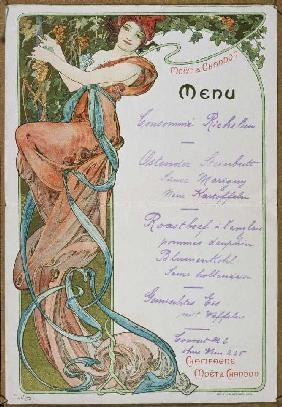 MOËT & CHANDON
MENU
Consommé Richelieu
Ostender Steinbutt
Sauce Margery
Neue Kartoffeln
Roastbeef à l'anglaise
pommes dauphin
Blumenkohl
Sauce hollandaise
Gemischtes Eis
mit Waffeln
Couvert M
ohne Wein 2.25
CHAMPAGNE
MOËT & CHANDON